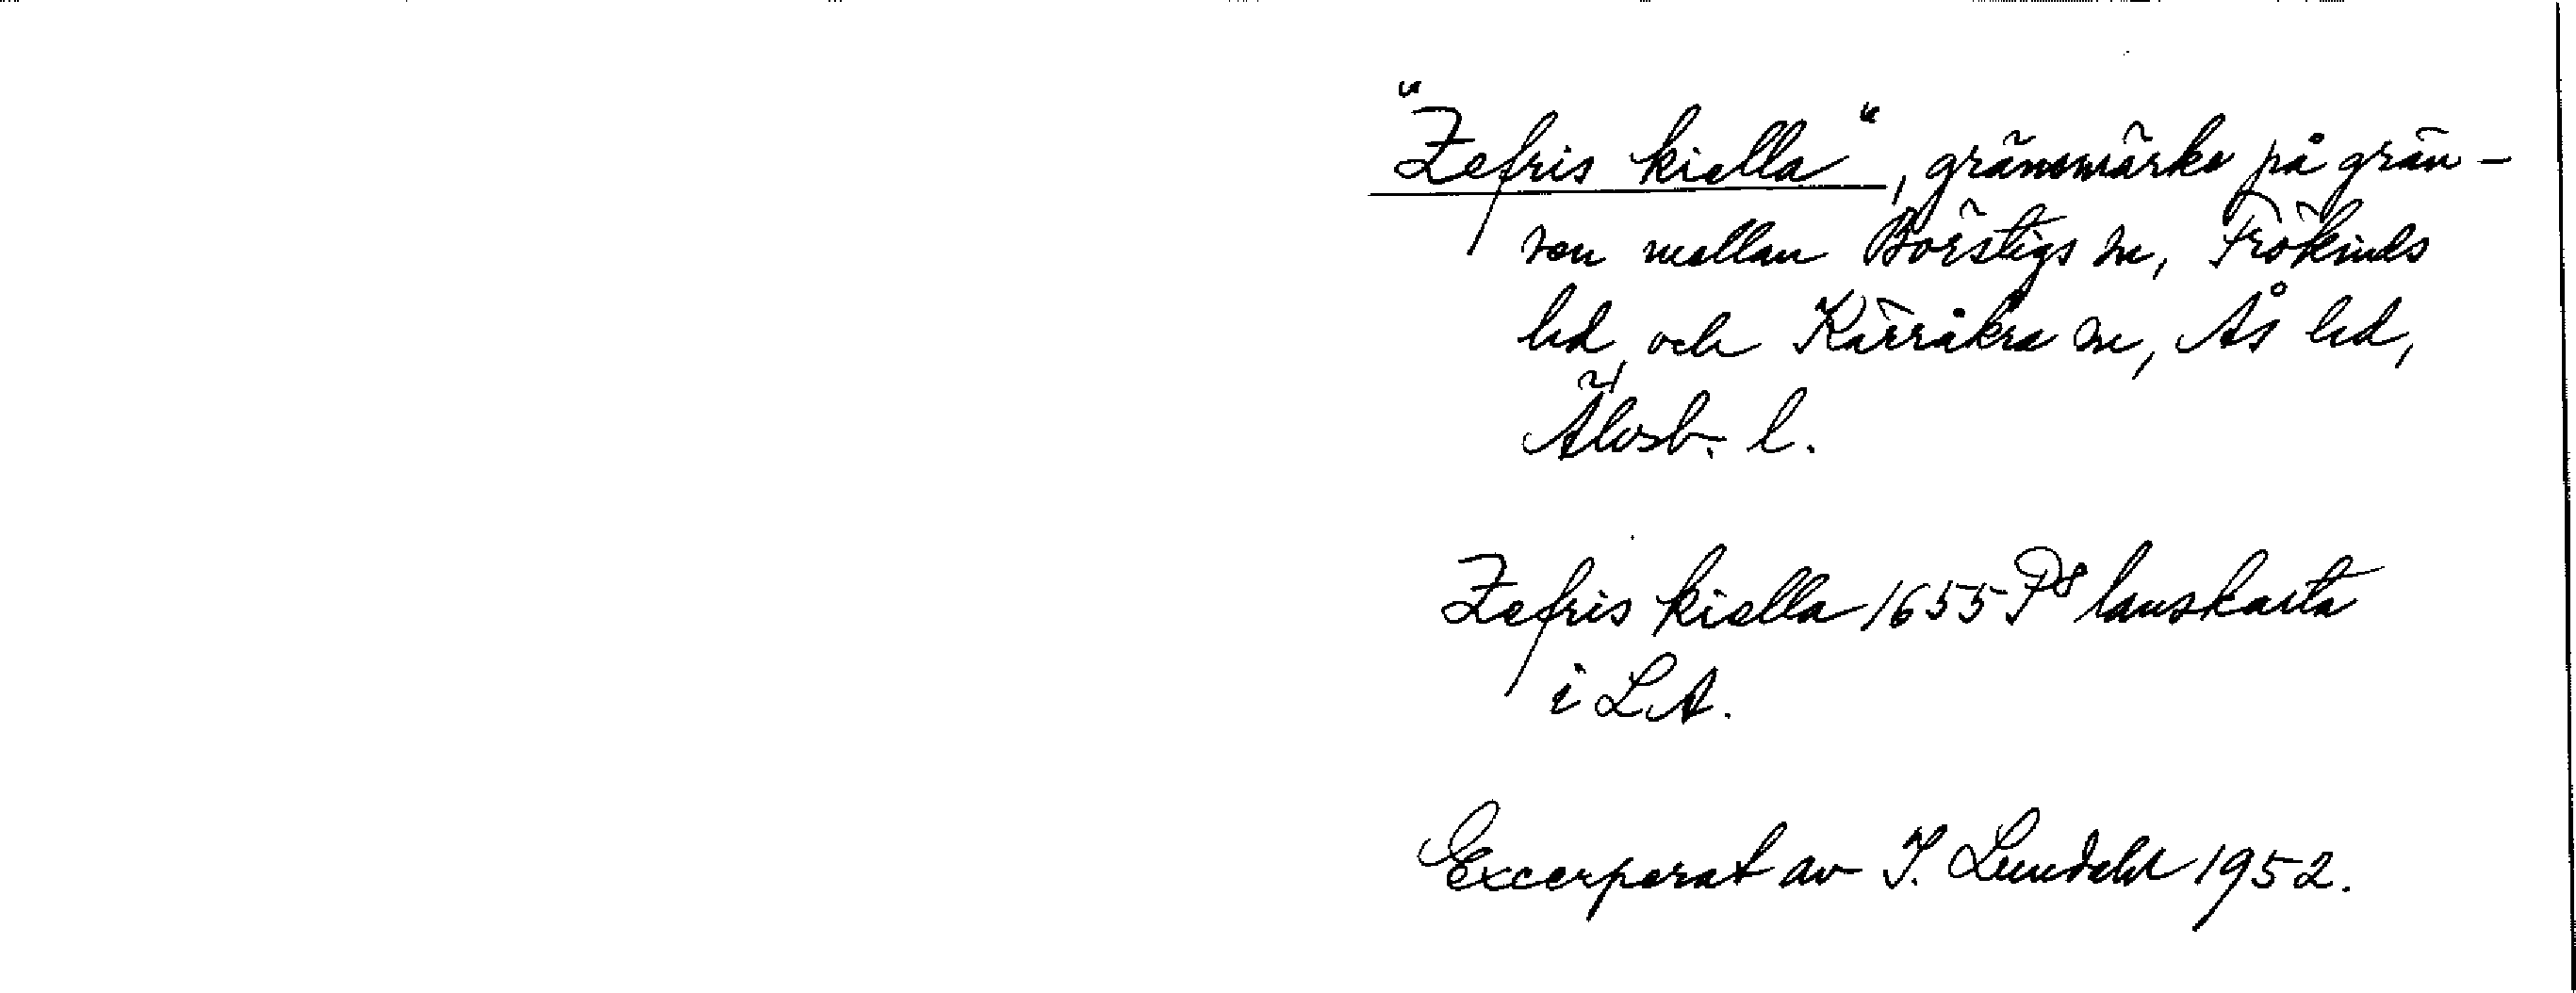 "Zefris kiella", gränsmärke på grän-
sen mellan Börstigs sn, Frökinds
hd, och Kärråkra sn, Ås hd,
Älvsb. l.
Zefris kiella 1655 P8 lanskarta
i LA.
Excerperat av I. Lundahl 1952.